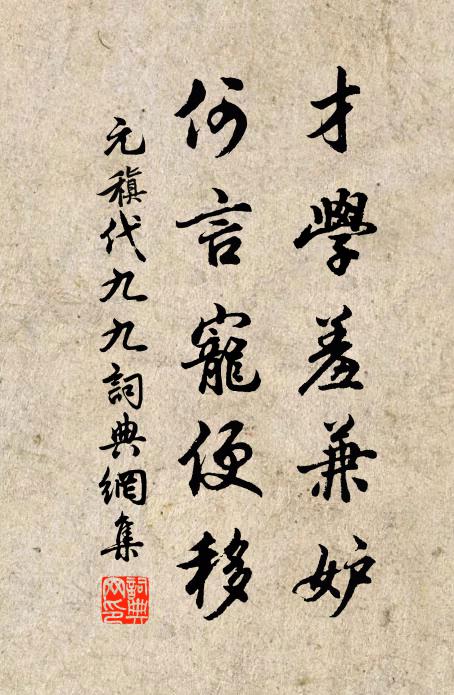 才學羞兼妒
何言寵便移
元稹代九九詞典網集
詞典
网印